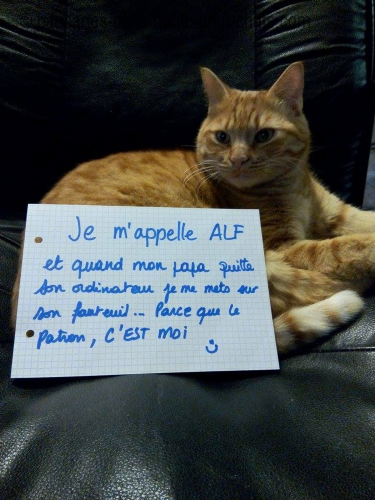 Je m'appelle ALF
et quand mon papa quitte
son ordinateur je me mets sur
son fauteuil... Parce que le
Patron, C'EST MOI